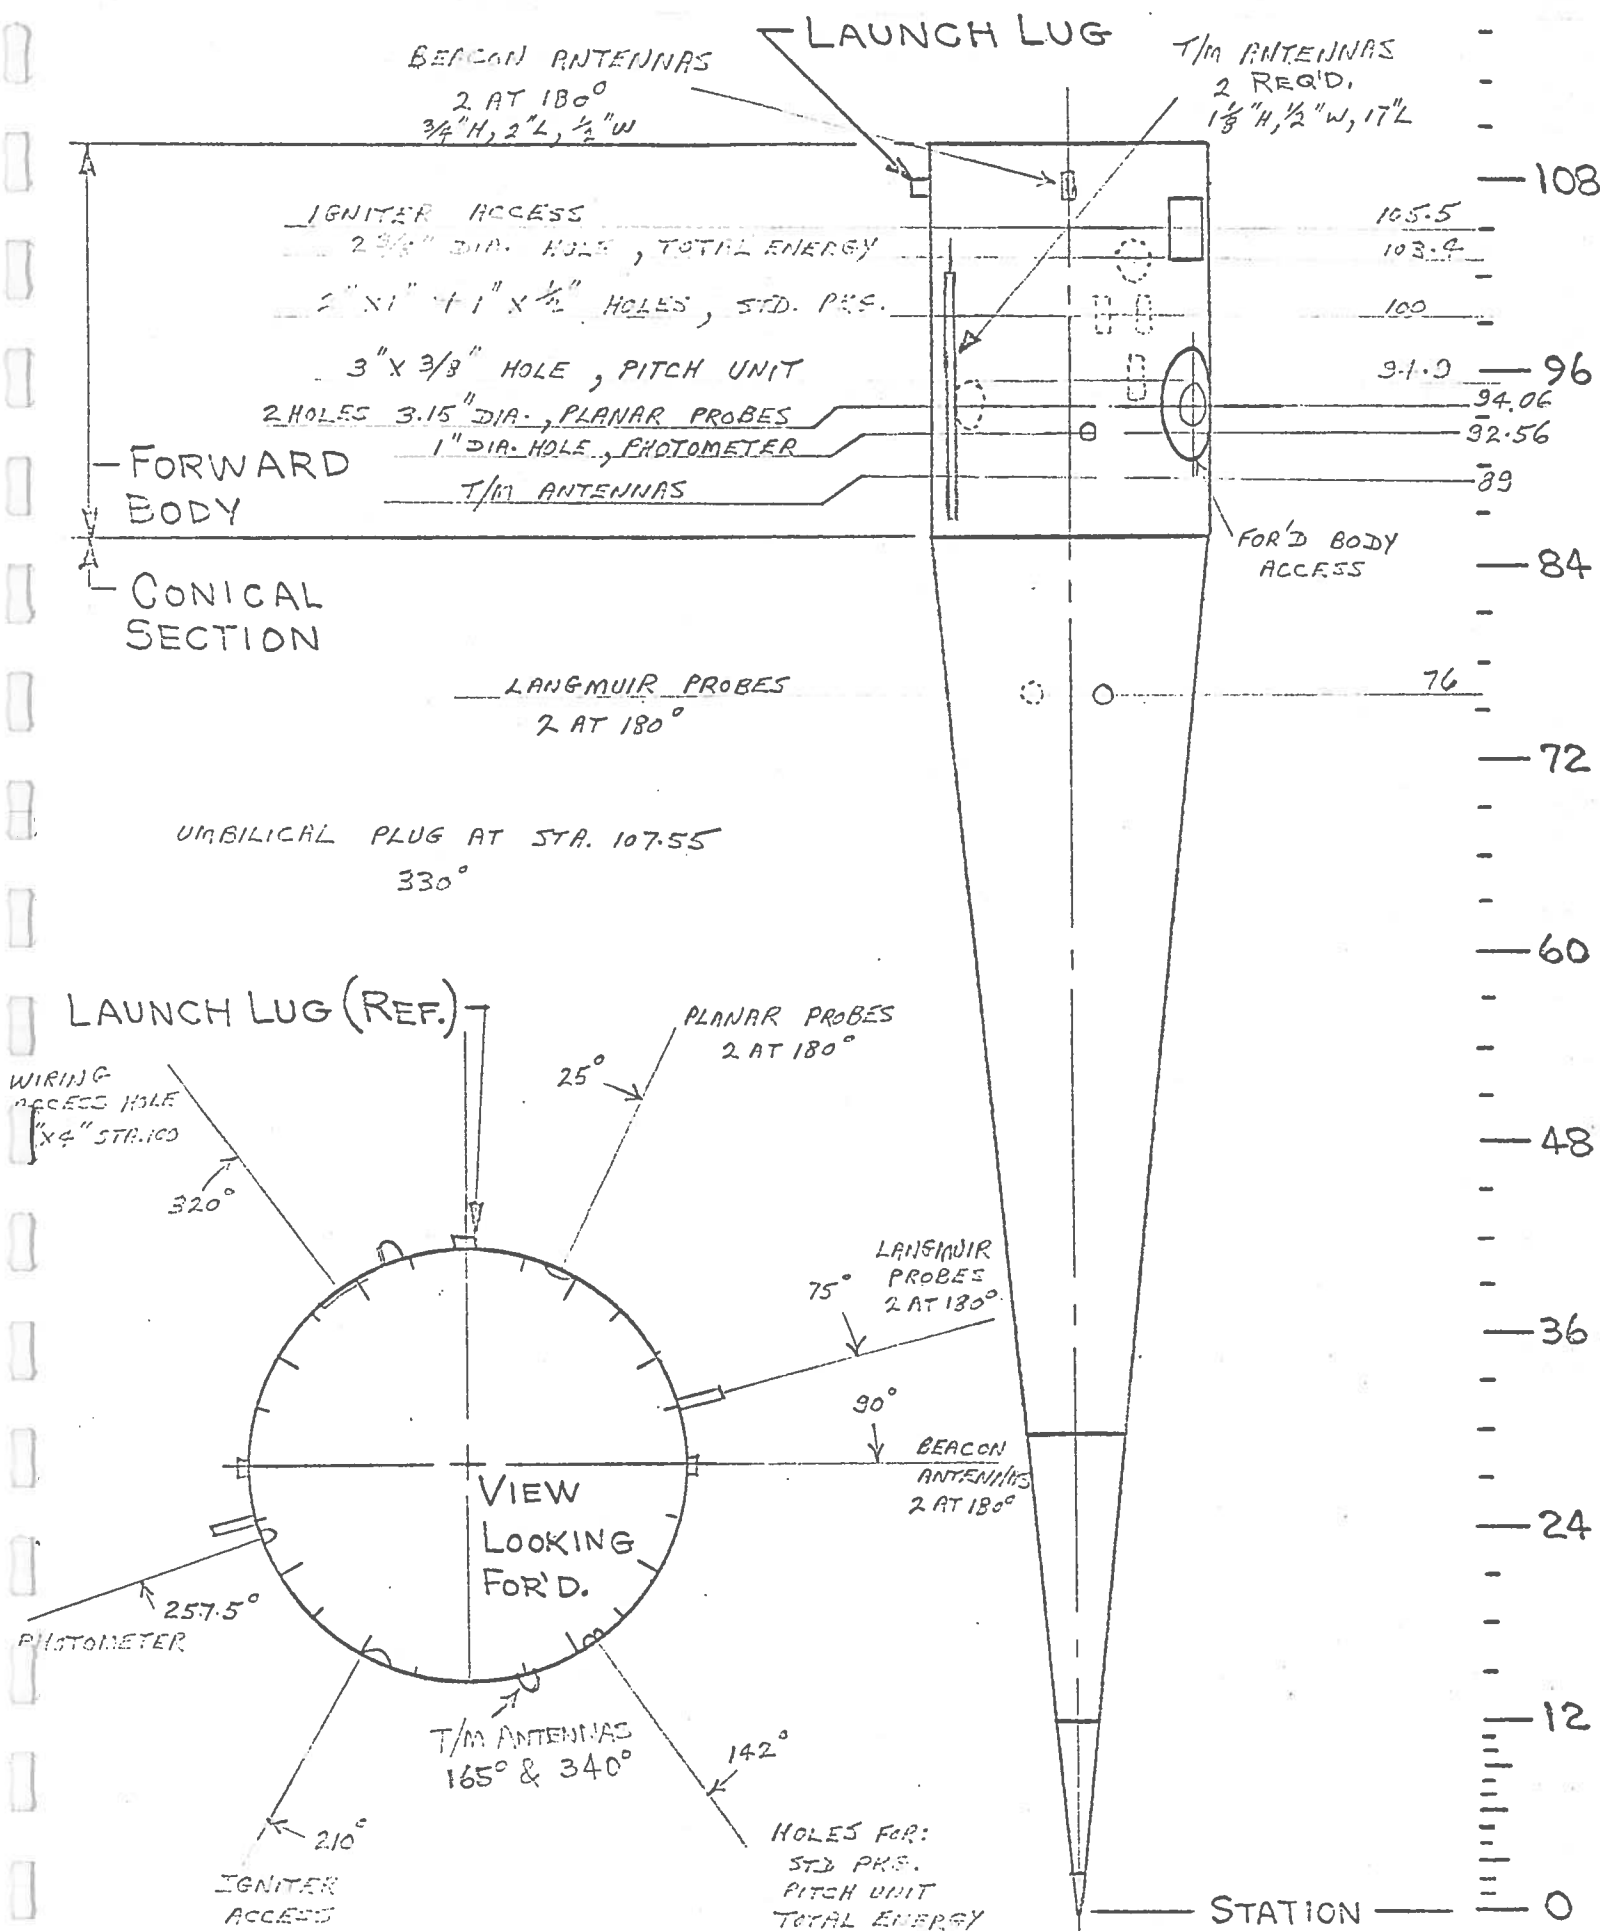 LAUNCH LUG
BEACON ANTENNAS
2 AT 180°
3/4"H, 2"L, 1/2"W
T/M ANTENNAS
2 REQ'D.
1 1/8"H, 1/2"W, 17"L
108
IGNITER ACCESS
105.5
2 3/8" DIA. HOLE, TOTAL ENERGY
103.4
2"X1" + 1"X1/2" HOLES, STD. PKG.
100
3"X 3/8" HOLE, PITCH UNIT
96
2 HOLES 3.15" DIA., PLANAR PROBES
94.06
1" DIA. HOLE, PHOTOMETER
92.56
T/M ANTENNAS
89
FORWARD
BODY
FOR'D BODY
ACCESS
84
CONICAL
SECTION
LANGMUIR PROBES
2 AT 180°
76
72
UMBILICAL PLUG AT STA. 107.55
330°
60
LAUNCH LUG (REF.)
PLANAR PROBES
2 AT 180°
25°
WIRING
ACCESS HOLE
"X4" STA.100
48
320°
LANGMUIR
PROBES
2 AT 180°
75°
36
90°
BEACON
ANTENNAS
2 AT 180°
VIEW
LOOKING
FOR'D.
24
257.5°
PHOTOMETER
T/M ANTENNAS
165° & 340°
12
142°
210°
IGNITER
ACCESS
HOLES FOR:
STD PKG.
PITCH UNIT
TOTAL ENERGY
STATION
0